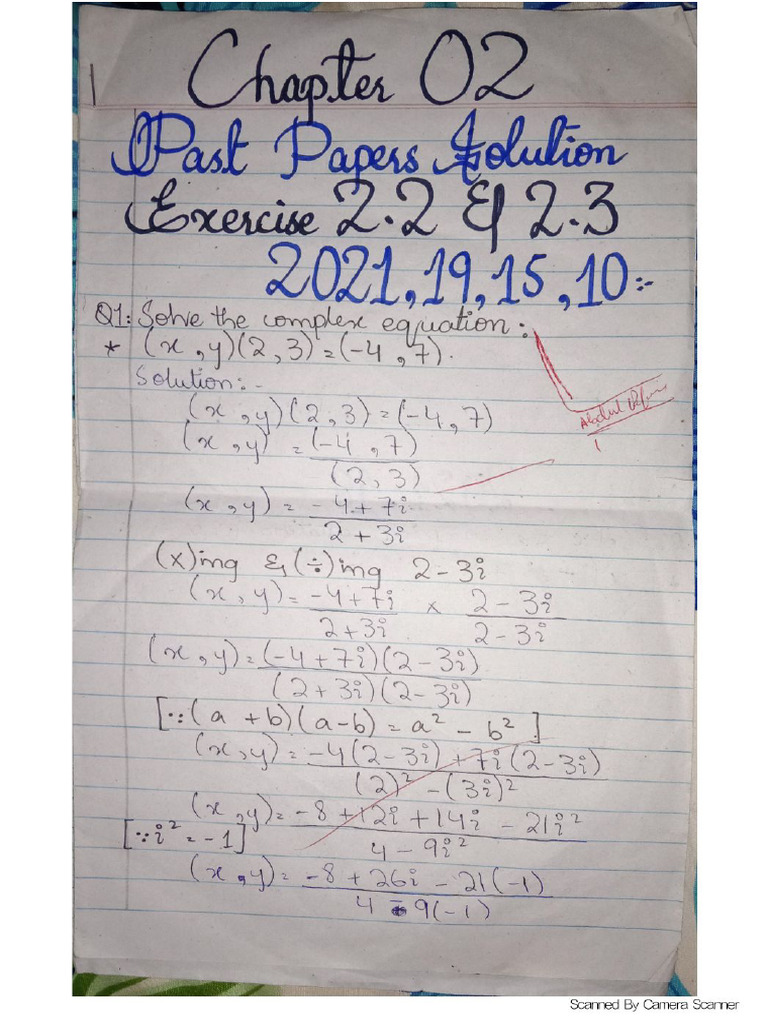 1
Chapter 02
Past Papers Solution
Exercise 2.2 & 2.3
2021, 19, 15, 10:-
Q1: Solve the complex equation:
* (x, y)(2, 3) = (-4, 7).
Solution:-
(x, y)(2, 3) = (-4, 7)
(x, y) = (-4, 7)
(2, 3)
(x, y) = -4 + 7i
2 + 3i
(x)ing & (÷)ing 2 - 3i
(x, y) = -4 + 7i × 2 - 3i
2 + 3i 2 - 3i
(x, y) = (-4 + 7i)(2 - 3i)
(2 + 3i)(2 - 3i)
[∵ (a + b)(a - b) = a² - b²]
(x, y) = -4(2 - 3i) + 7i(2 - 3i)
(2)² - (3i)²
(x, y) = -8 + 12i + 14i - 21i²
[∵ i² = -1] 4 - 9i²
(x, y) = -8 + 26i - 21(-1)
4 - 9(-1)
Abdul
Scanned By Camera Scanner